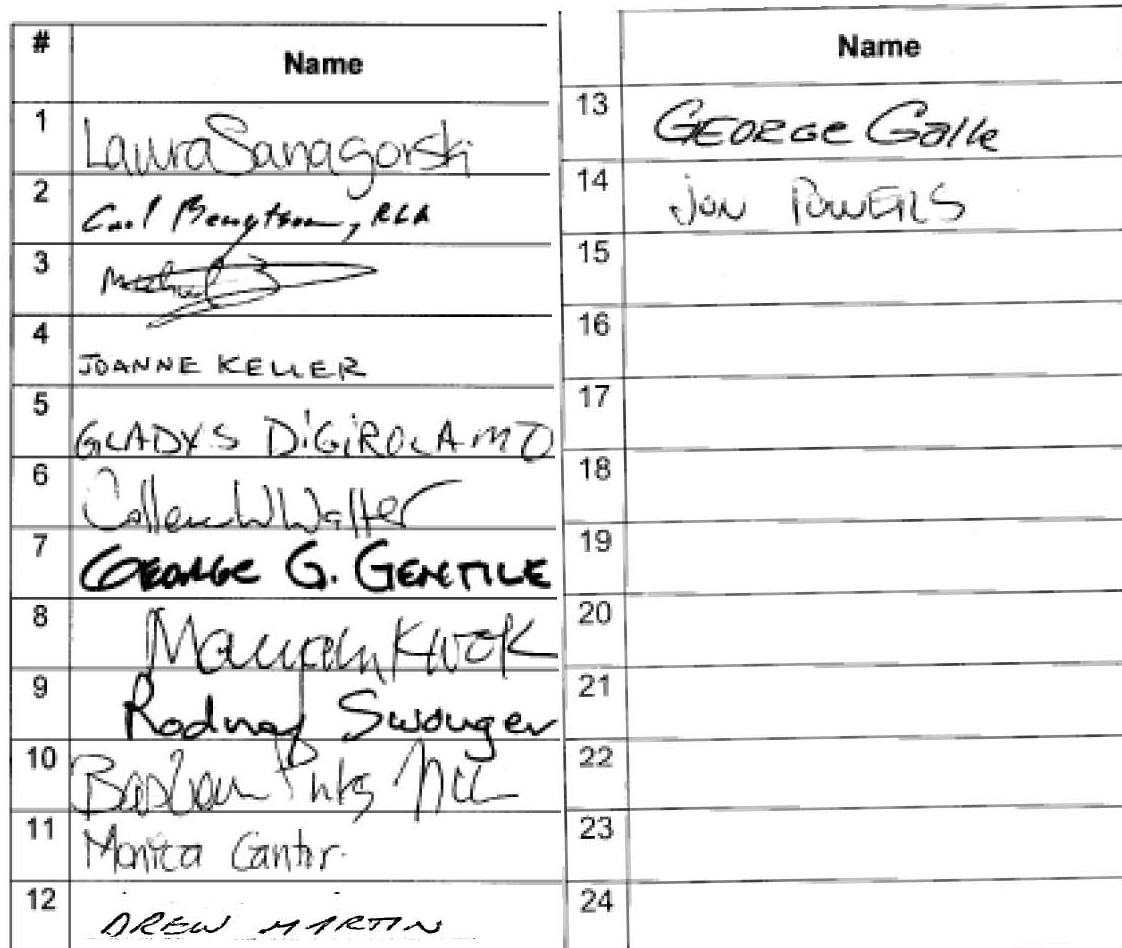 # Name
1 Laura Sanagorski
2 Carl Bengtson, RLA
3 Michael
4 JOANNE KELLER
5 GLADYS DiGiROLAMO
6 Colleen W Walter
7 GEORGE G. GENTILE
8 Kwok
9 Rodney Swonger
10
11 Monica Cantor
12 DREW MARTIN
Name
13 GEORGE Galle
14 Jon POWELLS
15
16
17
18
19
20
21
22
23
24